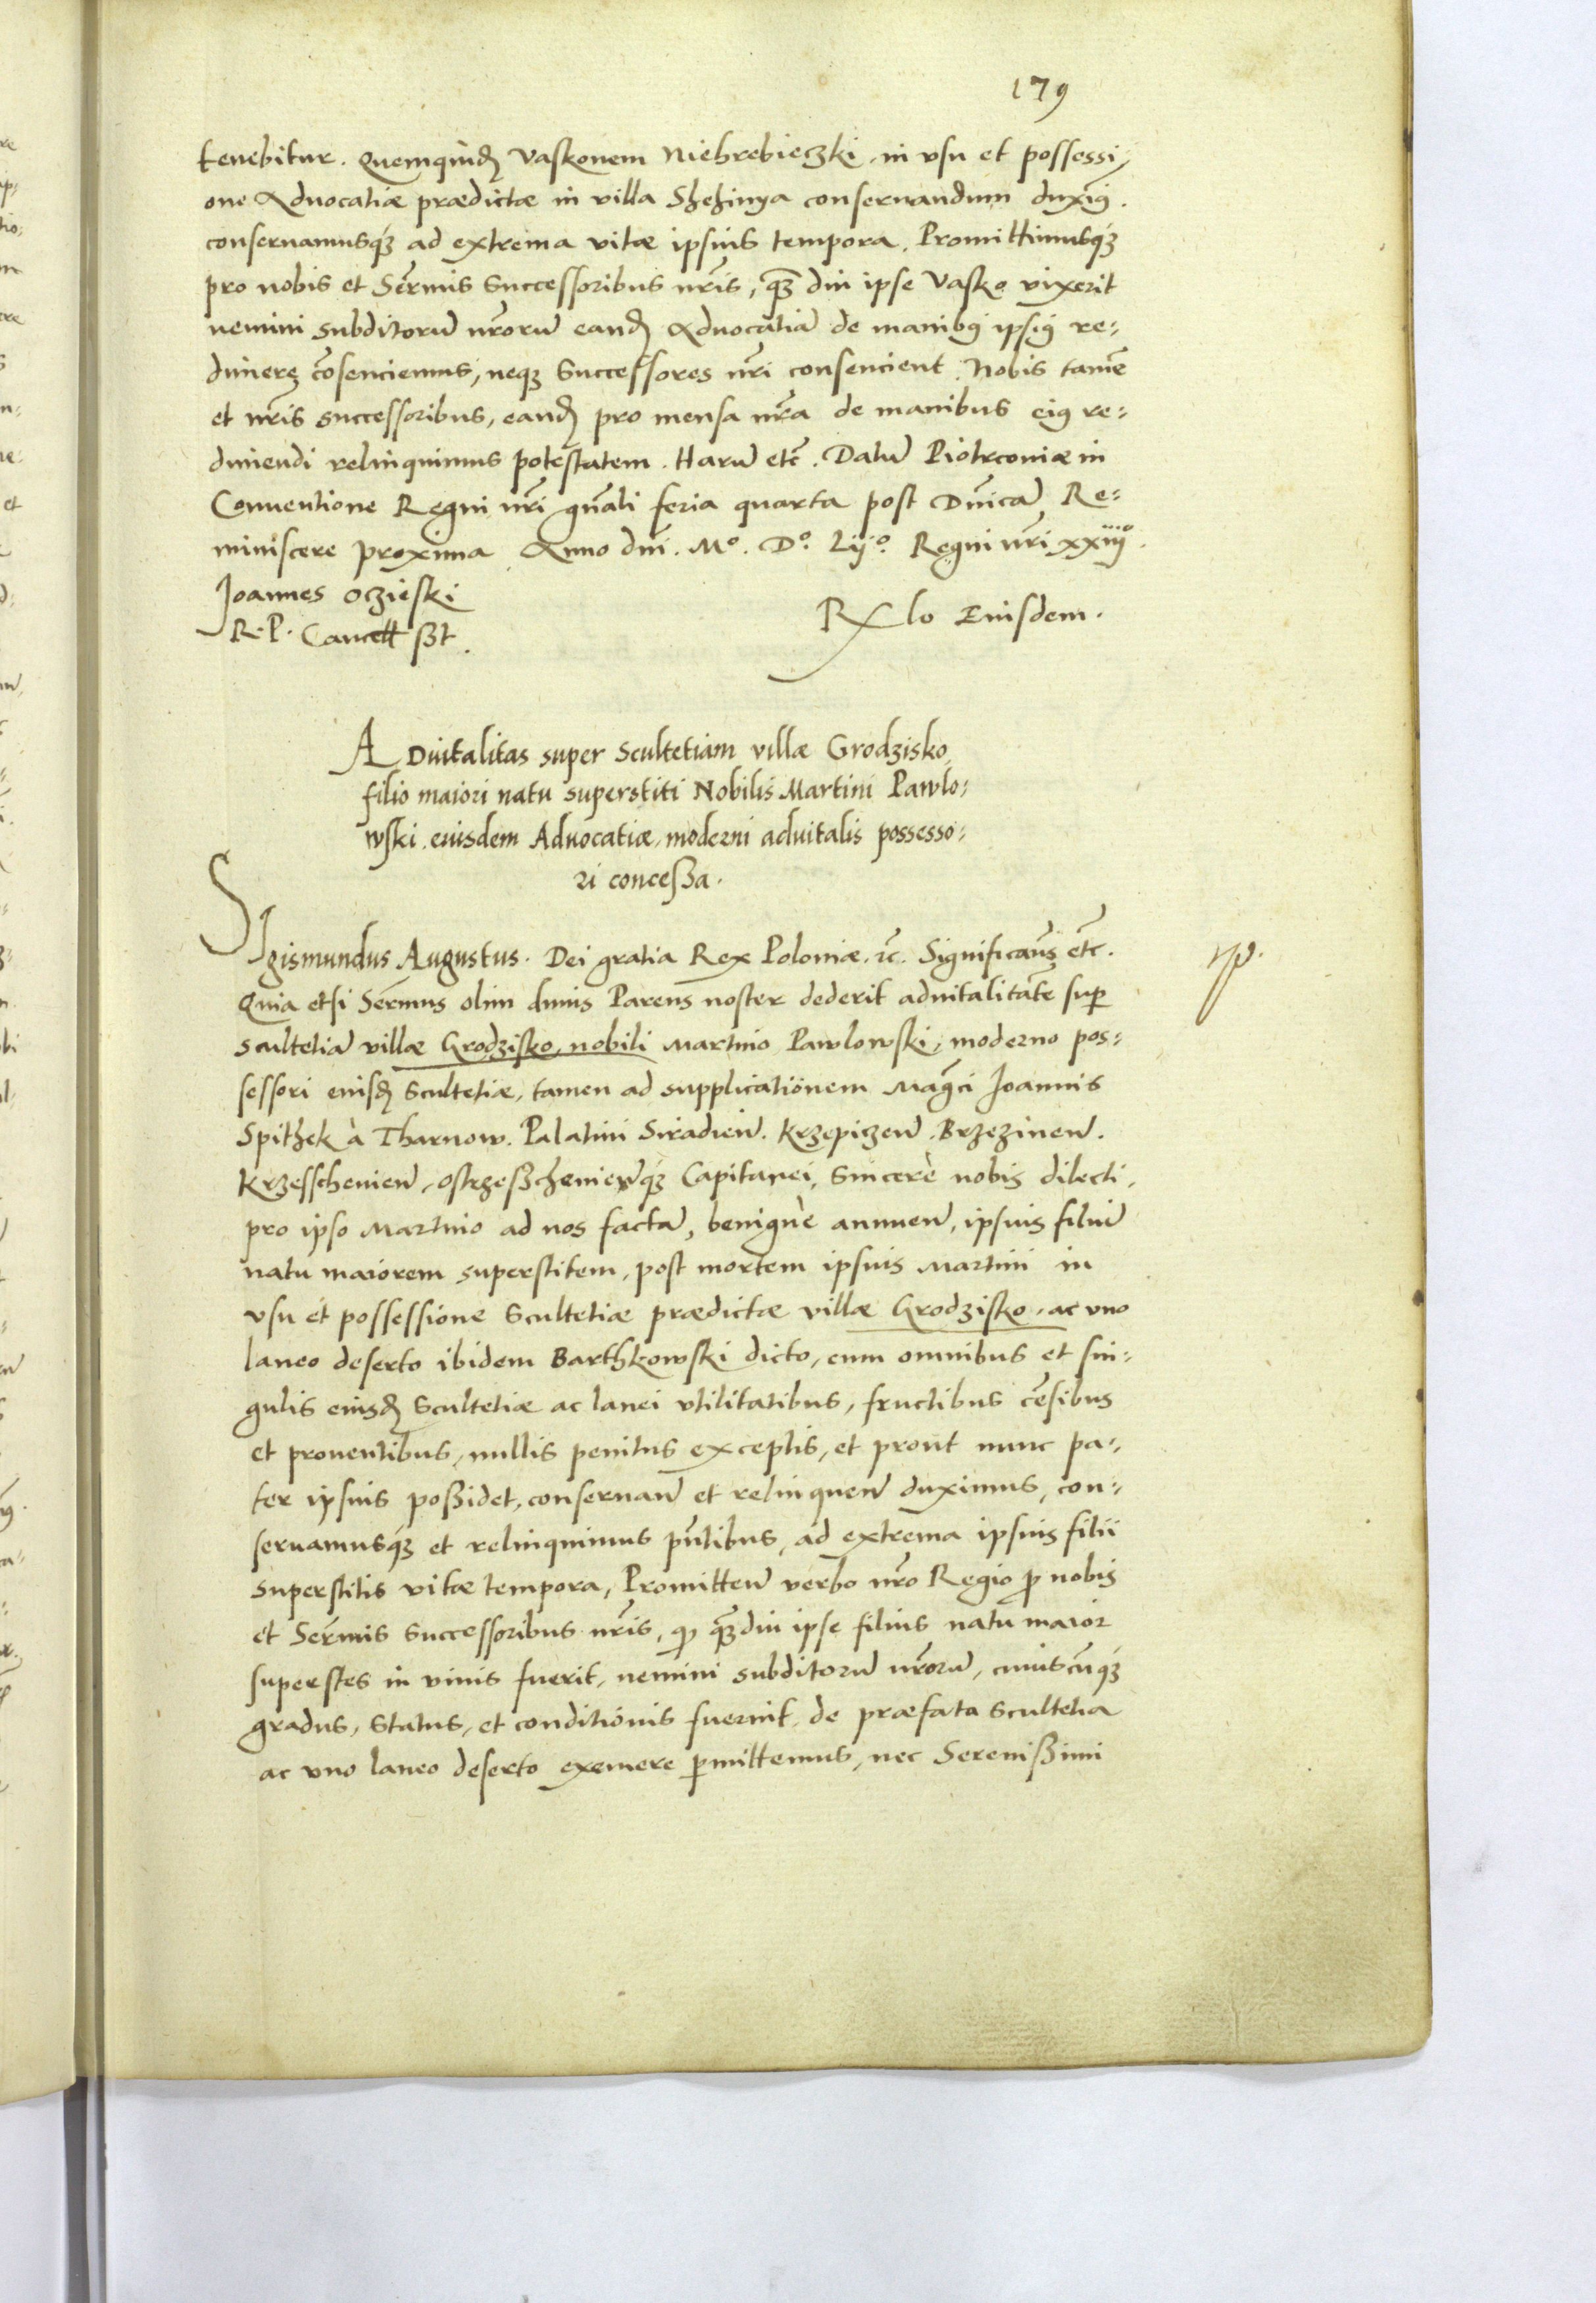 179
tenebitur. Quemquidẽ Vaskonem Niehrebieczki, in vsu et possessi,
one Aduocatiæ prædictæ in villa Shehinya conseruandum duxim9.
conseruamusq3 ad extrema vitæ ipsius tempora. Promittimusq3
pro nobis et Serm̃is Successoribus nr̃is, q̃3 diu ipse Vasko vixerit
nemini subditorũ nr̃orũ eandẽ Aduocatiã de manib9 ipsi9 re-
dimere cõsenciemus, neq3 Successores nr̃i consencient. Nobis tamẽ
et nr̃is successoribus, eandẽ pro mensa nr̃a de manibus ei9 re-
dimendi relinquimus potestatem. Harũ etc̃. Datũ Piotrconiæ in
Conuentione Regni nr̃i gñali feria quarta post Dñicã Re-
miniscere proxima Anno dñi. Mº. Dº. Lijº. Regni nr̃i xxiijº.
Joannes Oczieski
R. P. Cancell sst.
Rlo Eiusdem.
ADuitalitas super Scultetiam villæ Grodzisko
filio maiori natu superstiti Nobilis Martini Pawlo-
wski eiusdem Aduocatiæ, moderni aduitalis possesso-
ri concessa.
SIgismundus Augustus. Dei gratia Rex Poloniæ. &c. Significam9 etc̃.
Quia etsi Serm̃us olim diuus Parens noster dederit aduitalitatẽ sup
scultetiã villæ Grodzisko, nobili Martino Pawlowski, moderno pos-
sessori eiusdẽ Scultetiæ, tamen ad supplicationem Magc̃i Joannis
Spithek à Tharnow. Palatini Siradieñ. Krzepiczeñ. Brzezineñ.
Krzesscheuieñ, Ostrzesscheuieñq3 Capitanei, Sincerè nobis dilecti,
pro ipso Martino ad nos factã, benignè annueñ, ipsius filiũ
natu maiorem superstitem, post mortem ipsius Martini in
vsu et possessione Scultetiæ prædictæ villæ Grodzisko, ac vno
laneo deserto ibidem Barthkowski dicto, cum omnibus et sin-
gulis eiusdẽ Scultetiæ ac lanei vtilitatibus, fructibus cẽsibus
et prouentibus, nullis penitus exceptis, et prout nunc pa-
ter ipsius possidet, conseruañ et relinqueñ duximus, con-
seruamusq3 et relinquimus pñtibus, ad extrema ipsius filii
superstitis vitæ tempora, Promitteñ verbo nr̃o Regio p nobis
et Serm̃is Successoribus nr̃is, qd q̃3diu ipse filius natu maior
superstes in viuis fuerit, nemini subditorũ nr̃orũ, cuiuscũq3
gradus, status, et conditionis fuerint, de præfata Scultetia
ac vno laneo deserto eximere pmittemus, nec Serenissimi